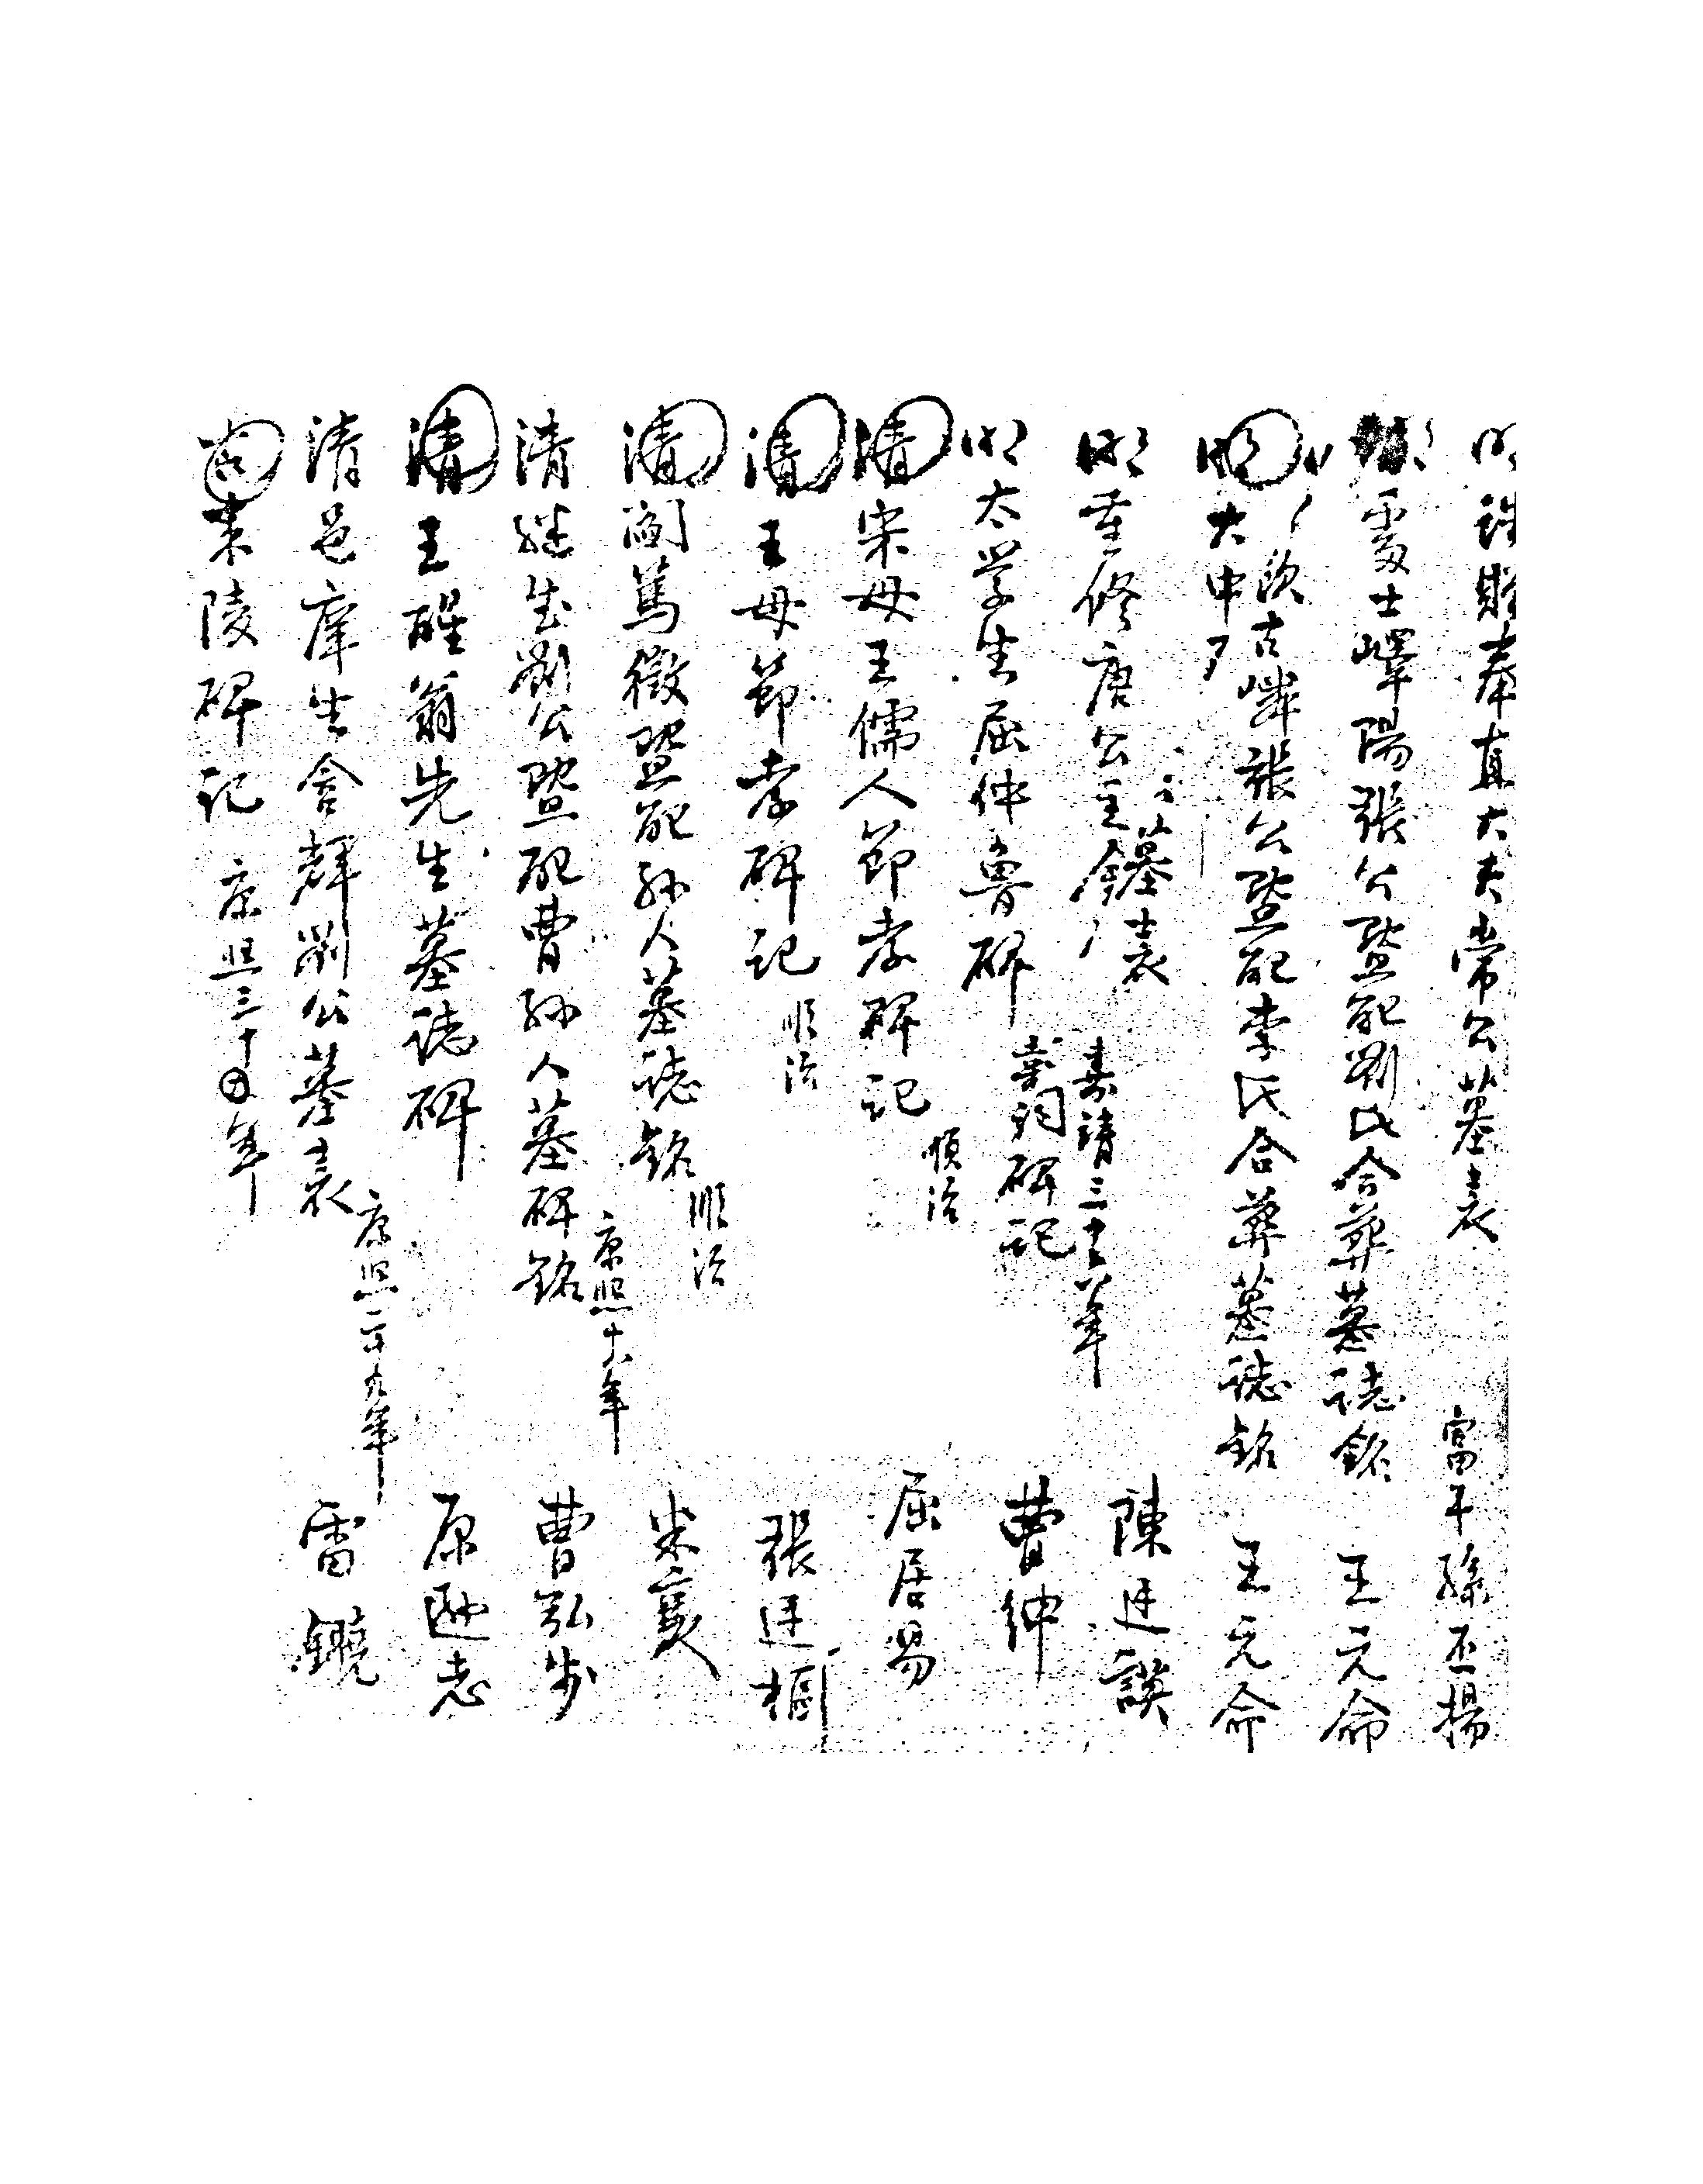 明誥贈奉直大夫常公墓表 富平孫丕揚
處士嶧陽張公暨配劉氏合葬墓誌銘 王元命
明大中 張公暨配李氏合葬墓誌銘 王元命
明重修唐公主 墓表 嘉靖三十 年 陳廷謨
明太學生屈仲魯 碑 祠碑記 曹紳
清宋母王儒人節孝碑記 順治 屈居易
清王母節孝碑記 順治 張廷樞
清閻篤徵暨配孫人墓誌銘 順治 米襄
清繼生劉公暨配曹孫人墓碑銘 康熙十六年 曹弘步
清王醒翁先生墓誌碑 原 志
清邑庠生含輝劉公墓表 康熙二十九年 雷鐃
陵碑記 康熙三十四年